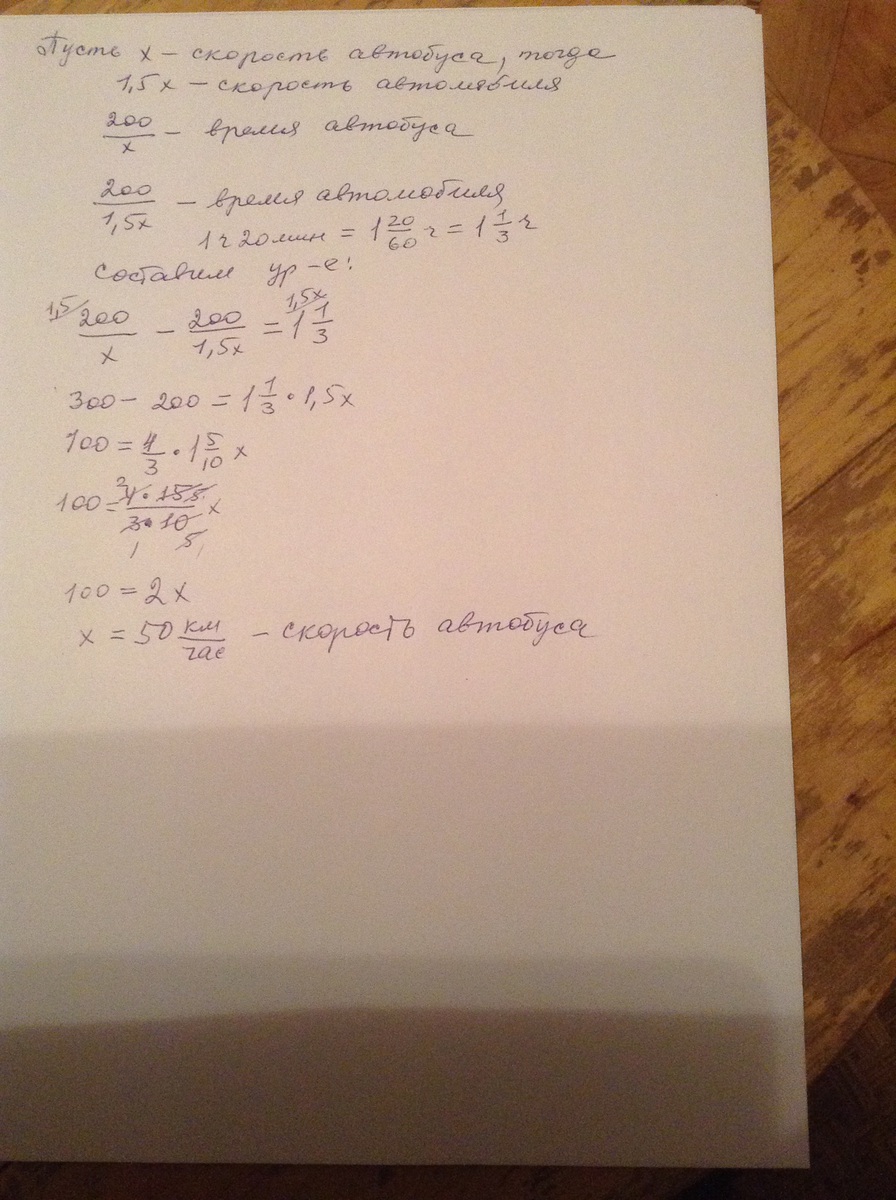 Пусть x – скорость автобуса, тогда
1,5x – скорость автомобиля
200/x – время автобуса
200/1,5x – время автомобиля
1 ч 20 мин = 1 20/60 ч = 1 1/3 ч
Составим ур-е:
1,5/ 200/x – 200/1,5x = 1,5x/ 1 1/3
300 – 200 = 1 1/3 · 1,5x
100 = 4/3 · 1 5/10 x
100 = 4 · 15/3 · 10 x
100 = 2x
x = 50 км/час – скорость автобуса